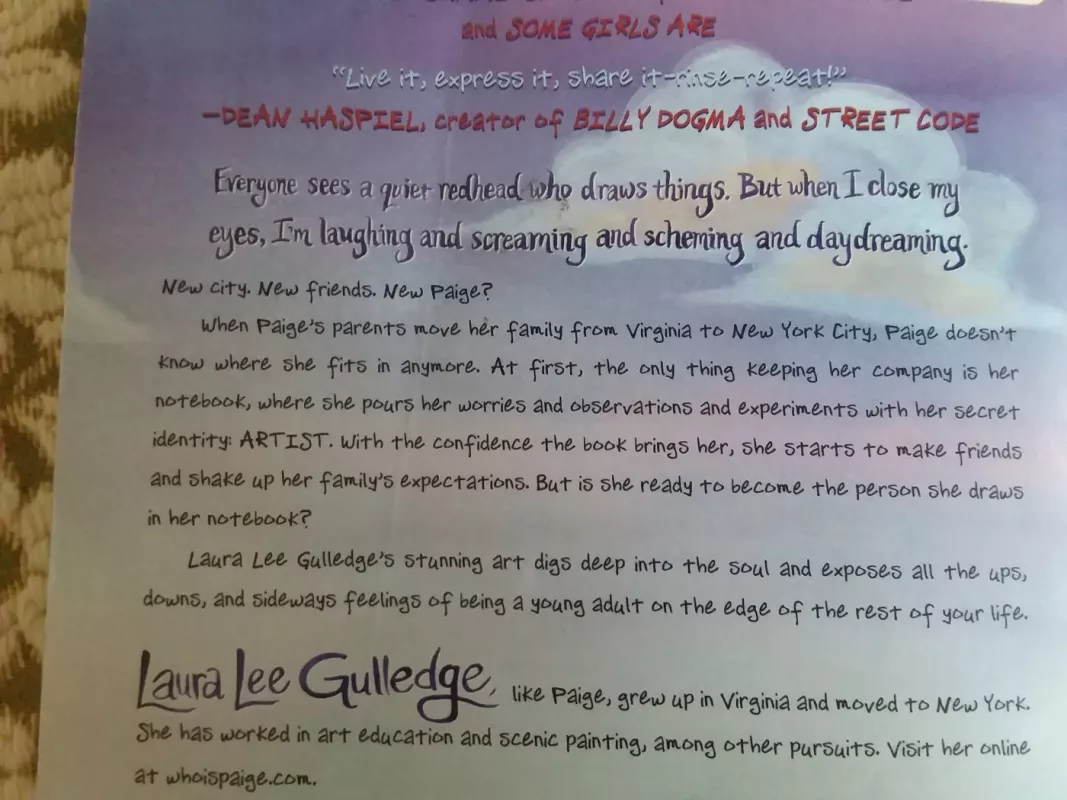 and SOME GIRLS ARE
"Live it, express it, share it-rinse-repeat!"
—DEAN HASPIEL, creator of BILLY DOGMA and STREET CODE
Everyone sees a quiet redhead who draws things. But when I close my
eyes, I'm laughing and screaming and scheming and daydreaming.
New city. New friends. New Paige?
When Paige's parents move her family from Virginia to New York City, Paige doesn't
know where she fits in anymore. At first, the only thing keeping her company is her
notebook, where she pours her worries and observations and experiments with her secret
identity: ARTIST. With the confidence the book brings her, she starts to make friends
and shake up her family's expectations. But is she ready to become the person she draws
in her notebook?
Laura Lee Gulledge's stunning art digs deep into the soul and exposes all the ups,
downs, and sideways feelings of being a young adult on the edge of the rest of your life.
Laura Lee Gulledge, like Paige, grew up in Virginia and moved to New York.
She has worked in art education and scenic painting, among other pursuits. Visit her online
at whoispaige.com.